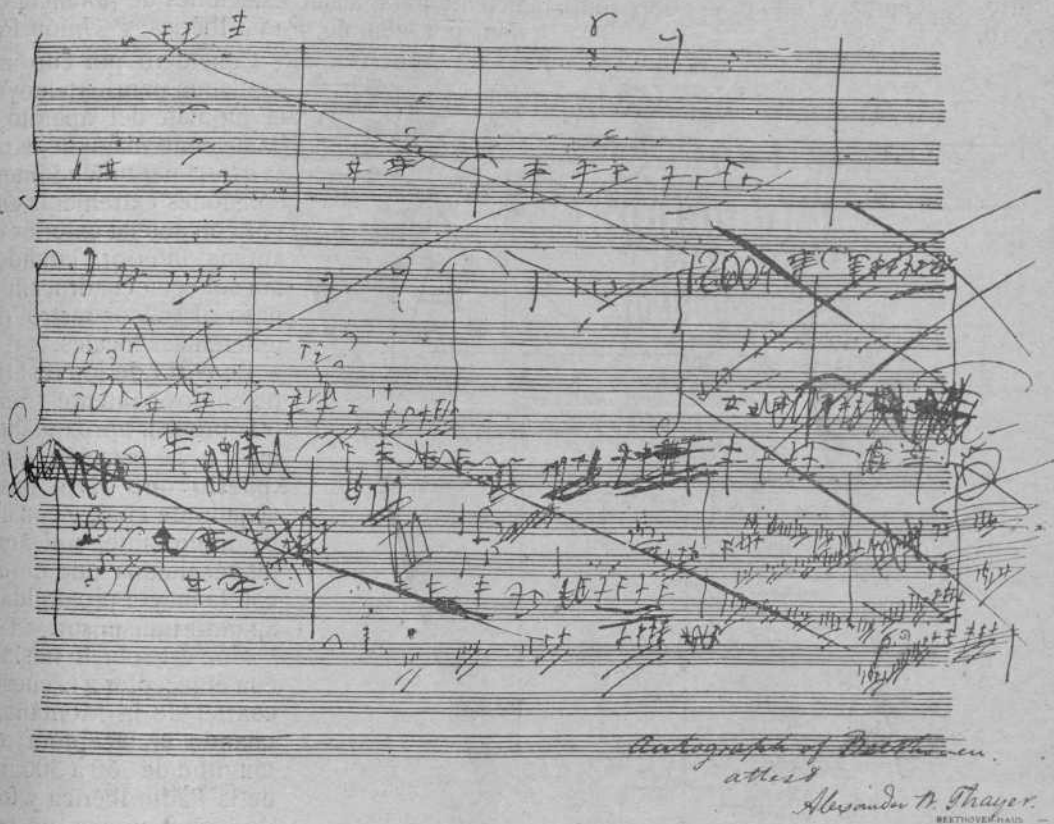 Autograph of Beethoven.
attest
Alexander W. Thayer.
BEETHOVEN-HAUS